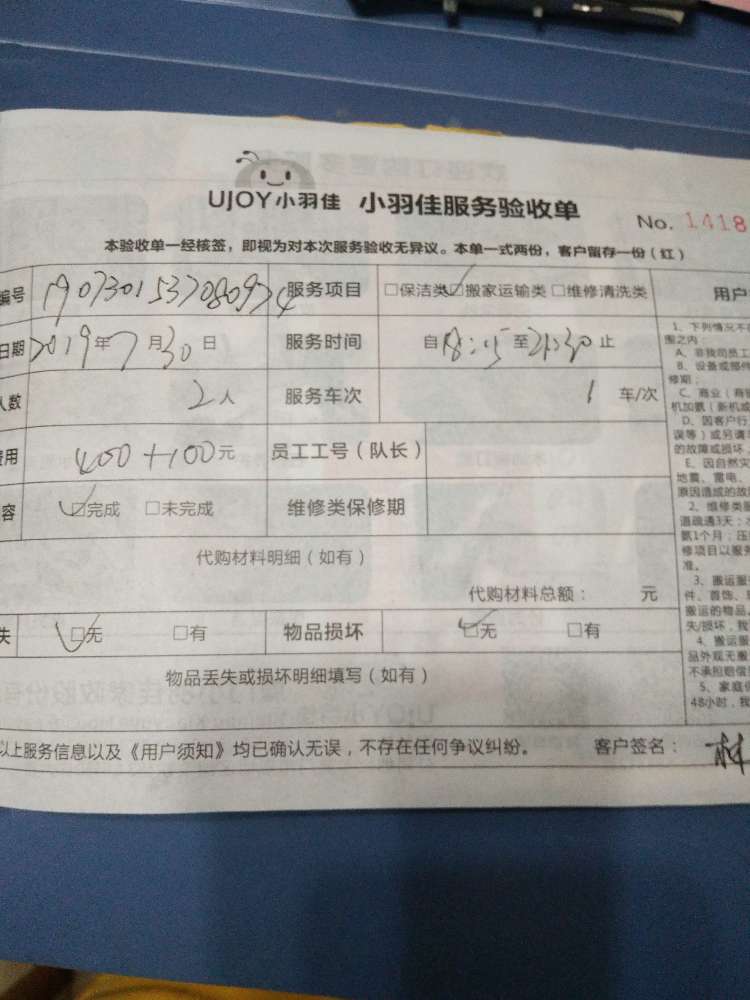 UJOY小羽佳 小羽佳服务验收单
No. 1418
本验收单一经核签，即视为对本次服务验收无异议。本单一式两份，客户留存一份（红）
编号 1907301537080974 服务项目 □保洁类 ☑搬家运输类 □维修清洗类
日期 2019年7月30日 服务时间 自18:15至21:30止
人数 2人 服务车次 1 车/次
费用 400+100元 员工工号（队长）
容 ☑完成 □未完成 维修类保修期
代购材料明细（如有）
代购材料总额： 元
失 ☑无 □有 物品损坏 ☑无 □有
物品丢失或损坏明细填写（如有）
以上服务信息以及《用户须知》均已确认无误，不存在任何争议纠纷。 客户签名： 林
用户
1、下列情况不
围之内：
A、非我司员工
B、设备或部件
修期；
C、商业（商
机加氨（新机或
D、因客户行
误等）或另请
的故障或损坏
E、因自然灾
地震、雷电、
原因造成的故
2、维修类服
道疏通3天；
氨1个月；压
修项目以服务
准。
3、搬运服
件、首饰、
搬运的物品
失/损坏，我
4、搬运服
品外观无服
不承担赔偿
5、家庭
48小时，我